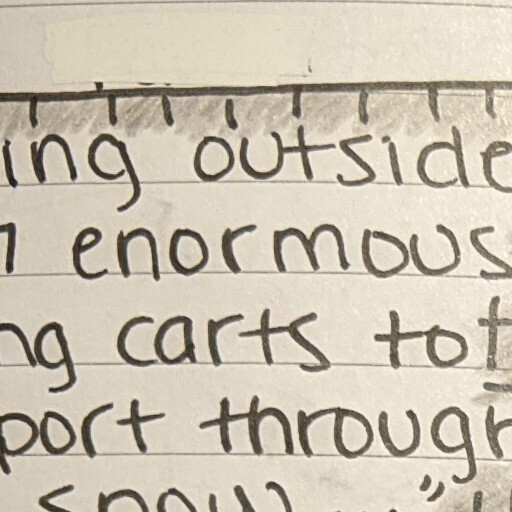 ing outside
enormous
ng carts to
port through
snow..."